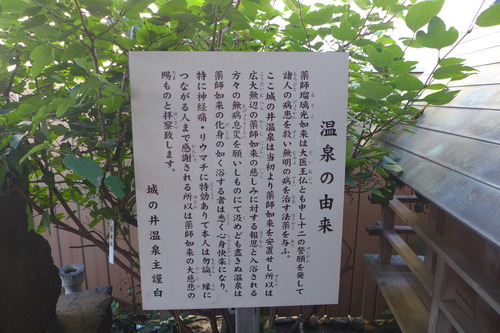 温泉の由来
薬師瑠璃光如来は大医王仏とも申し十二の誓願を発して
諸人の病患を救い無明の病を治す法薬を与ふ。
ここ城の井温泉は当初より薬師如来を安置せし所以は
広大無辺の薬師如来の慈しみに対する報恩と入浴される
方々の無病息災を願いしものにて汲めども盡きぬ温泉は
薬師如来の化身の如く浴する者は悉く心身快楽になり、
特に神経痛・リウマチに特効ありて本人は勿論、縁に
つながる人まで感謝される所以は薬師如来の大慈悲の
賜ものと拝察致します。
城の井温泉主謹白